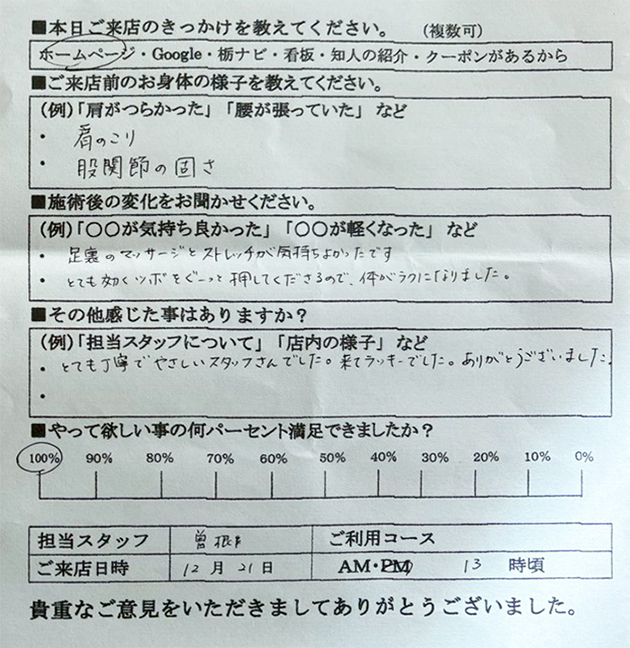 ■本日ご来店のきっかけを教えてください。 (複数可)
ホームページ・Google・栃ナビ・看板・知人の紹介・クーポンがあるから
■ご来店前のお身体の様子を教えてください。
(例)「肩がつらかった」「腰が張っていた」など
・ 肩のこり
・ 股関節の固さ
■施術後の変化をお聞かせください。
(例)「〇〇が気持ち良かった」「〇〇が軽くなった」など
・ 足裏のマッサージとストレッチが気持ちよかったです
・ とても効くツボをぐーっと押してくださるので、体がラクになりました。
■その他感じた事はありますか？
(例)「担当スタッフについて」「店内の様子」など
・ とても丁寧でやさしいスタッフさんでした。来てラッキーでした。ありがとうございました。
・
■やって欲しい事の何パーセント満足できましたか？
100% 90% 80% 70% 60% 50% 40% 30% 20% 10% 0%
担当スタッフ 曽根 ご利用コース
ご来店日時 12月21日 AM・PM 13 時頃
貴重なご意見をいただきましてありがとうございました。